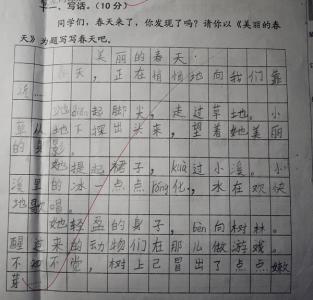 一、写话。(10分)
同学们，春天来了，你发现了吗？请你以《美丽的春
天》为题写写春天吧。
美丽的春天
春天，正在悄悄地向我们靠
近……
她踮起脚尖，走过草地。小
草从地下探出头来，望着她美丽
的身影。
她提起裙子，kuà过小溪。小
溪里的冰一点点róng化，水在欢快
地歌唱。
她轻盈的身子，bèn向树林。
醒过来的动物们在那儿做游戏。
不知不觉，树上已冒出了点点嫩
芽。